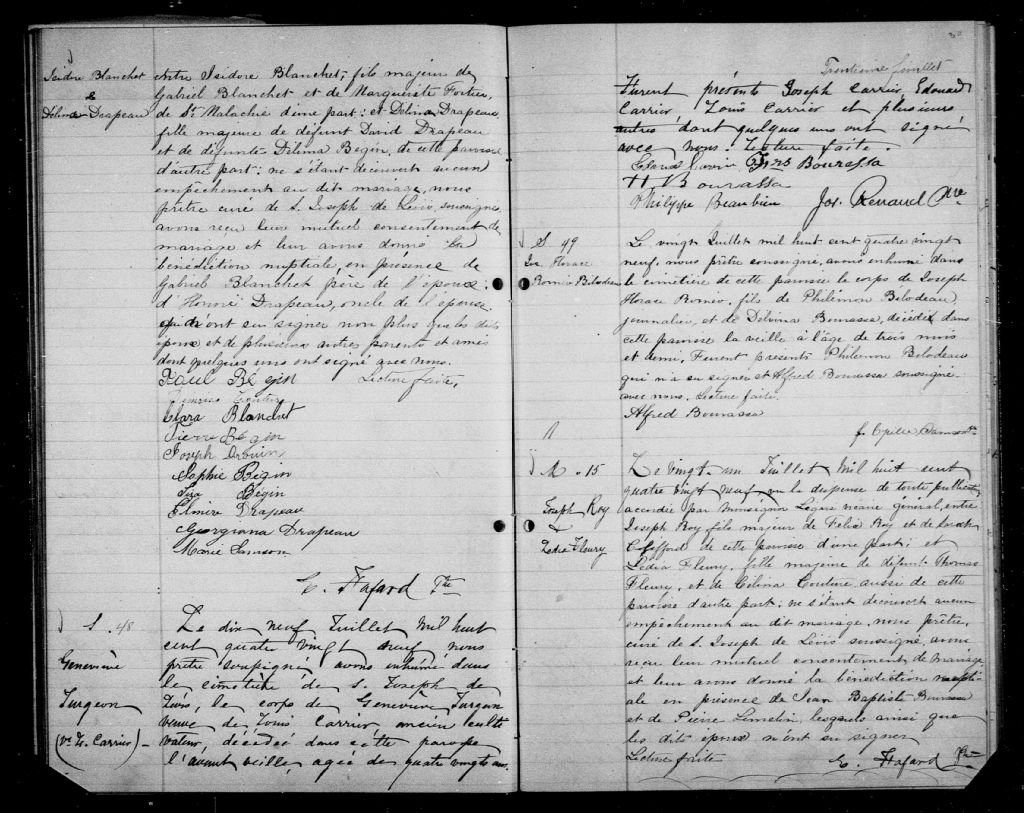 Isidore Blanchet
&
Délima Drapeau
entre Isidore Blanchet, fils majeur de
Gabriel Blanchet et de Marguerite Fortier,
de St. Malachie d'une part; et Délima Drapeau
fille majeure de défunt David Drapeau
et de défunte Délima Begin, de cette paroisse
d'autre part: ne s'étant découvert aucun
empêchement au dit mariage, nous
prêtre curé de S. Joseph de Lévis, soussigné
avons reçu leur mutuel consentement de
mariage et leur avons donné la
bénédiction nuptiale, en présence de
Gabriel Blanchet père de l'époux;
d'Honoré Drapeau, oncle de l'épouse
qui n'ont su signer non plus que les dits
époux et de plusieurs autres parents et amis
dont quelques uns ont signé avec nous.
Paul Bégin Lecture faite,
Clara Blanchet
Pierre Bégin
Joseph
Sophie Bégin
Bégin
Elmire Drapeau
Georgiana Drapeau
Marie Samson
E. Fafard Ptre
S. 48
Geneviève
Turgeon
(Ve. Ls. Carrier)
Le dix neuf Juillet Mil huit
cent quatre vingt neuf nous
prêtre soussigné avons inhumé dans
le cimetière de S. Joseph de
Lévis, le corps de Geneviève Turgeon
veuve de Louis Carrier, ancien culti
vateur, décédée dans cette paroisse
l'avant veille, agée de quatre vingts ans.
30
Trentième feuillet
Furent présents Joseph Carrier, Edouard
Carrier, Louis Carrier et plusieurs
autres dont quelques uns ont signé
avec nous. Lecture faite.
Bourassa
H. Bourassa
Philippe Beaubien Jos. Renaud Ptre
S 49
Jos. Horace
Roméo Bilodeau
Le vingt Juillet mil huit cent quatre vingt
neuf, nous prêtre soussigné, avons inhumé dans
le cimetière de cette paroisse le corps de Joseph
Horace Roméo, fils de Philémon Bilodeau
journalier, et de Delvina Bourassa, décédé dans
cette paroisse la veille à l'âge de trois mois
et demi. Furent présents Philémon Bilodeau
qui n'a su signer et Alfred Bourassa soussigné
avec nous. Lecture faite.
Alfred Bourassa
Samson Ptre
M. 15
Joseph Roy
&
Lédia Fleury
Le vingt-un Juillet Mil huit cent
quatre vingt neuf vu la dispense de toute publication
accordée par Monseigneur Légaré vicaire général, entre
Joseph Roy fils majeur de Félix Roy et de Sarah
Clifford de cette paroisse d'une part; et
Lédia Fleury, fille majeure de défunt Thomas
Fleury, et de Célina Couture aussi de cette
paroisse d'autre part: ne s'étant découvert aucun
empêchement au dit mariage, nous prêtre,
curé de S. Joseph de Lévis soussigné, avons
reçu leur mutuel consentement de Mariage
et leur avons donné la bénédiction nupti-
ale en présence de Jean Baptiste Bourassa
et de Pierre Lemelin, lesquels ainsi que
les dits époux n'ont su signer
Lecture faite E. Fafard Ptre